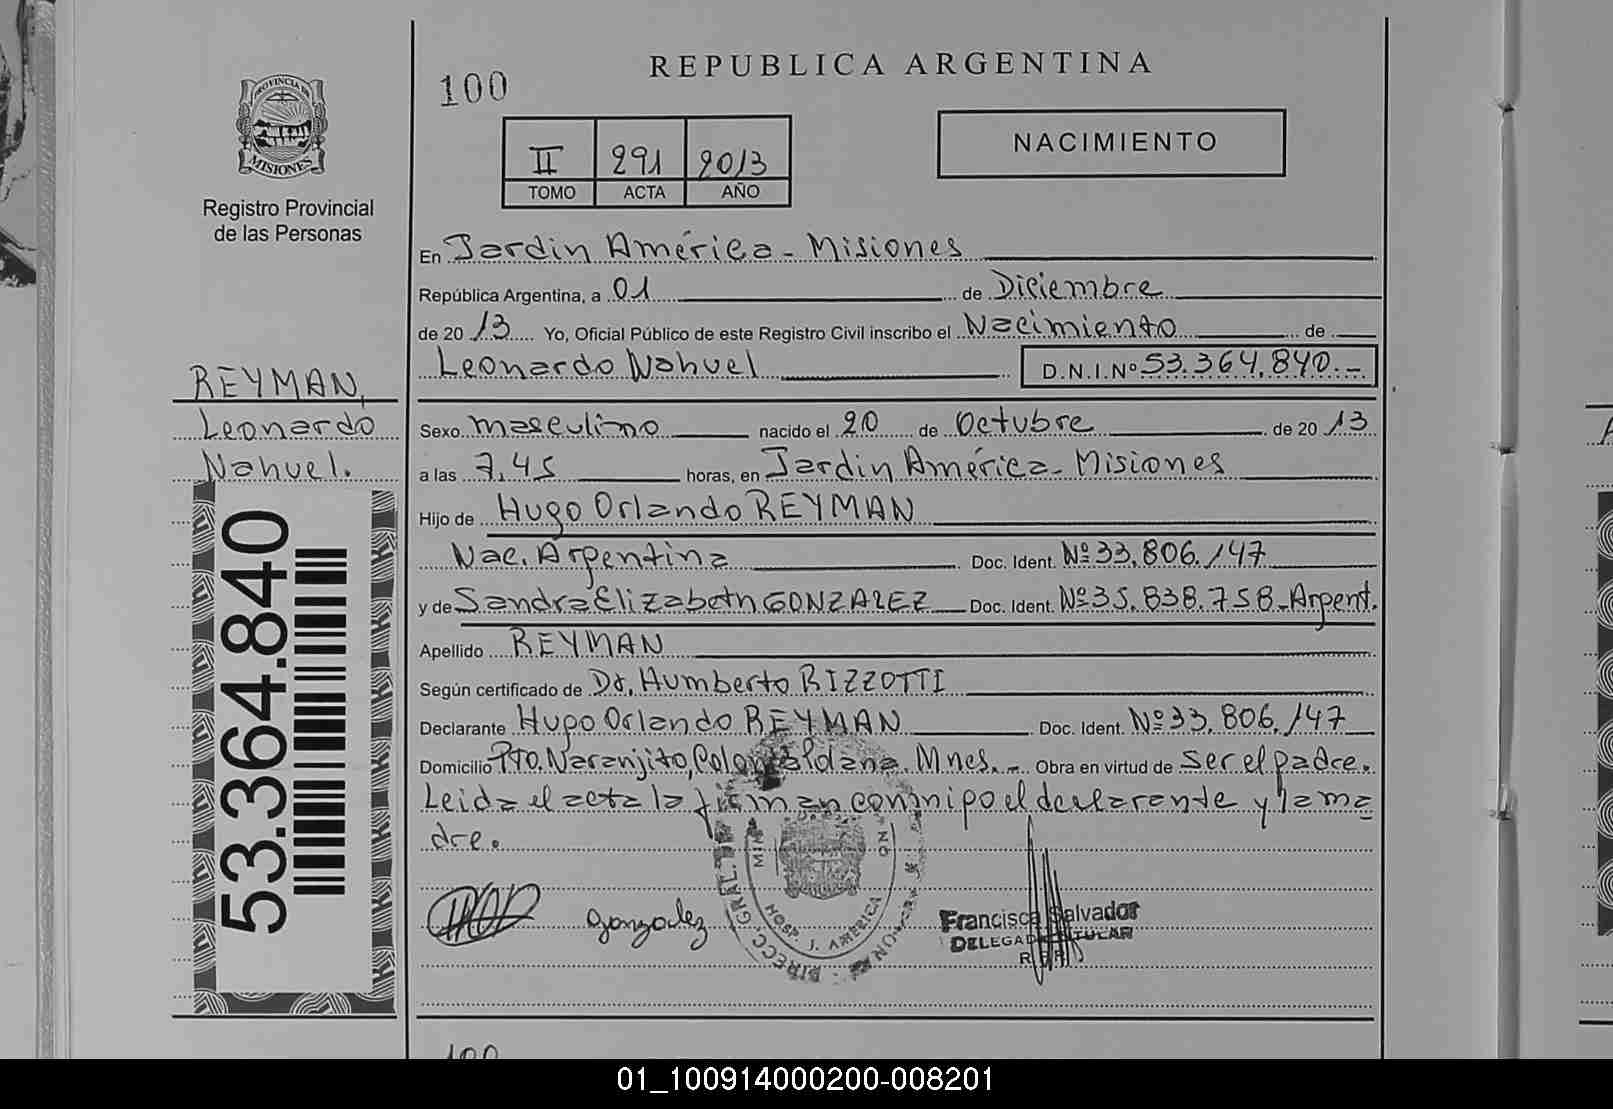 100
REPUBLICA ARGENTINA
PROVINCIA DE
MISIONES
Registro Provincial
de las Personas
II 291 2013
TOMO ACTA AÑO
NACIMIENTO
En Jardin América - Misiones
República Argentina, a 01 de Diciembre
de 2013 Yo, Oficial Público de este Registro Civil inscribo el Nacimiento de
Leonardo Nahuel D.N.I.Nº 53.364.840.-
REYMAN,
Leonardo
Nahuel.
53.364.840
Sexo masculino nacido el 20 de Octubre de 2013
a las 7,45 horas, en Jardin América - Misiones
Hijo de Hugo Orlando REYMAN
Nac. Argentina Doc. Ident. Nº 33.806.147
y de Sandra Elizabeth GONZALEZ Doc. Ident. Nº 35.838.758 - Argent.
Apellido REYMAN
Según certificado de Dr. Humberto RIZZOTTI
Declarante Hugo Orlando REYMAN Doc. Ident. Nº 33.806.147
Domicilio Pto. Naranjito, Mnes.- Obra en virtud de ser el padre.
Leida el acta la firman conmigo el declarante y la ma
dre.
Gonzalez
DIRECC. GRAL. DE
HOSP J. AMERICA
Francisco Salvador
DELEGADO TITULAR
01_100914000200-008201